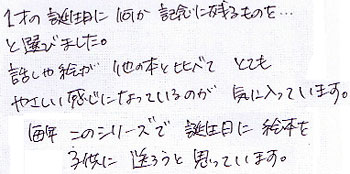 1才の 誕生日に 何か 記念に残るものを…
と選びました。
話しや絵が 他の本と比べて とても
やさしい感じになっているのが 気に入っています。
毎年 このシリーズで 誕生日に 絵本を
子供に 送ろうと 思っています。